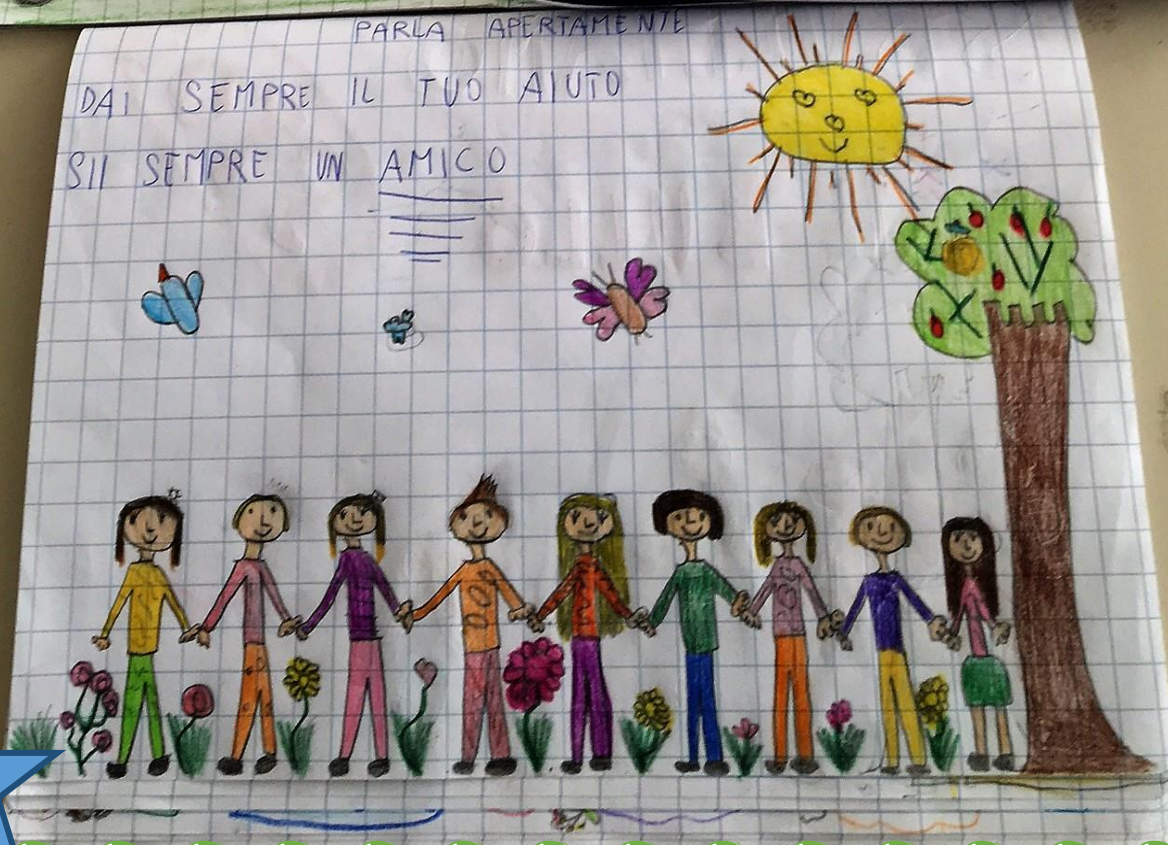 PARLA APERTAMENTE
DAI SEMPRE IL TUO AIUTO
SII SEMPRE UN AMICO